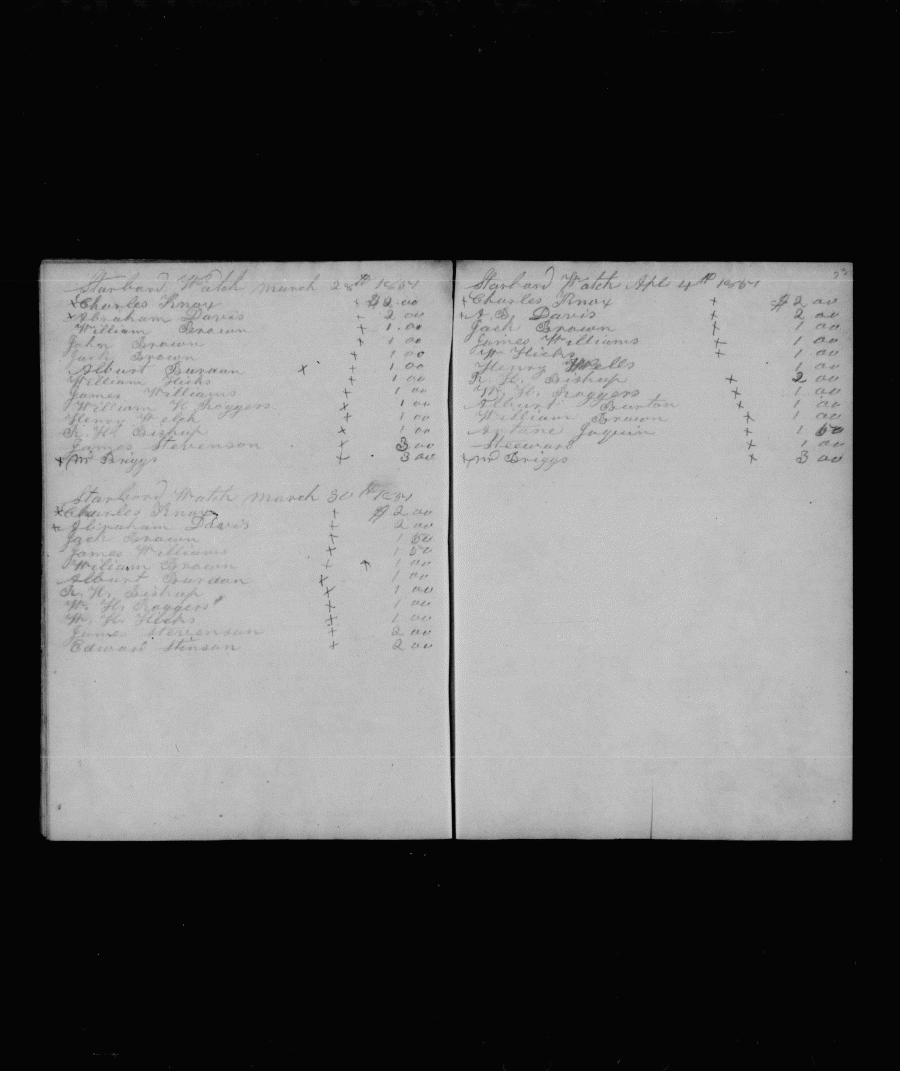 Starbord Watch March 28th 1854
x Charles Knox + $2.00
x Abraham Davis + 2 00
William Brown + 1.00
John Brown + 1 00
Jack Brown + 1 00
Alburt Burdan x + 1.00
William Hicks + 1 00
James Williams + 1 00
William H Roggers + 1 00
Henry Welch + 1 00
R. H. Bishup x 1 00
James Stevenson x 3 00
x Mr Briggs x 3 00
Starbord Watch March 30th 1854
x Charles Knox + $2.00
x Abraham Davis + 2 00
Jack Brown + 1 50
James Williams + 1 50
William Brown + 1 00
Alburt Burdan x 1 00
R. H. Bishup x 1 00
W. H. Roggers x 1 00
W. H. Hicks + 1 00
James Stevenson + 2 00
Edward Stinson + 2 00
Starbord Watch Apl 4th 1854
x Charles Knox + $2 00
x A. B. Davis + 2 00
Jack Brown x 1 00
James Williams x 1 00
W Hicks + 1 00
Henry Wells 1 00
R. H. Bishup x 2 00
W. H. Roggers x 1 00
Alburt Burton x 1 00
William Brown x 1 00
Antone Joquin x 1 50
Steward x 1 00
x Mr Briggs x 3 00